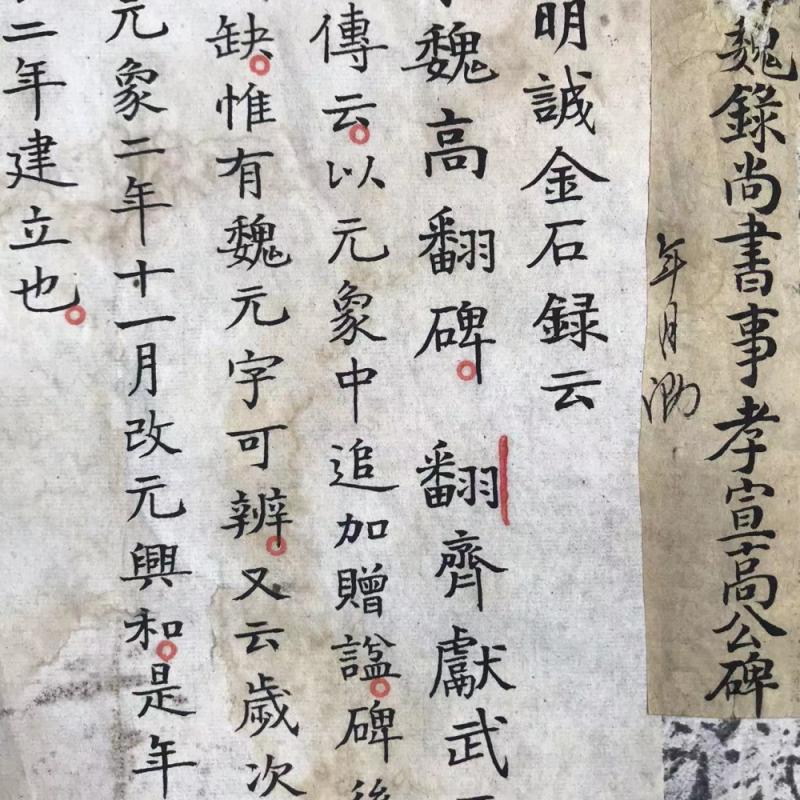 魏錄尚書事孝宣高公碑
年月泐
明誠金石録云
魏高翻碑。翻齊獻武
傳云。以元象中追加贈諡。碑後
缺。惟有魏元字可辨。又云歲次
元象二年十一月改元興和。是年
二年建立也。